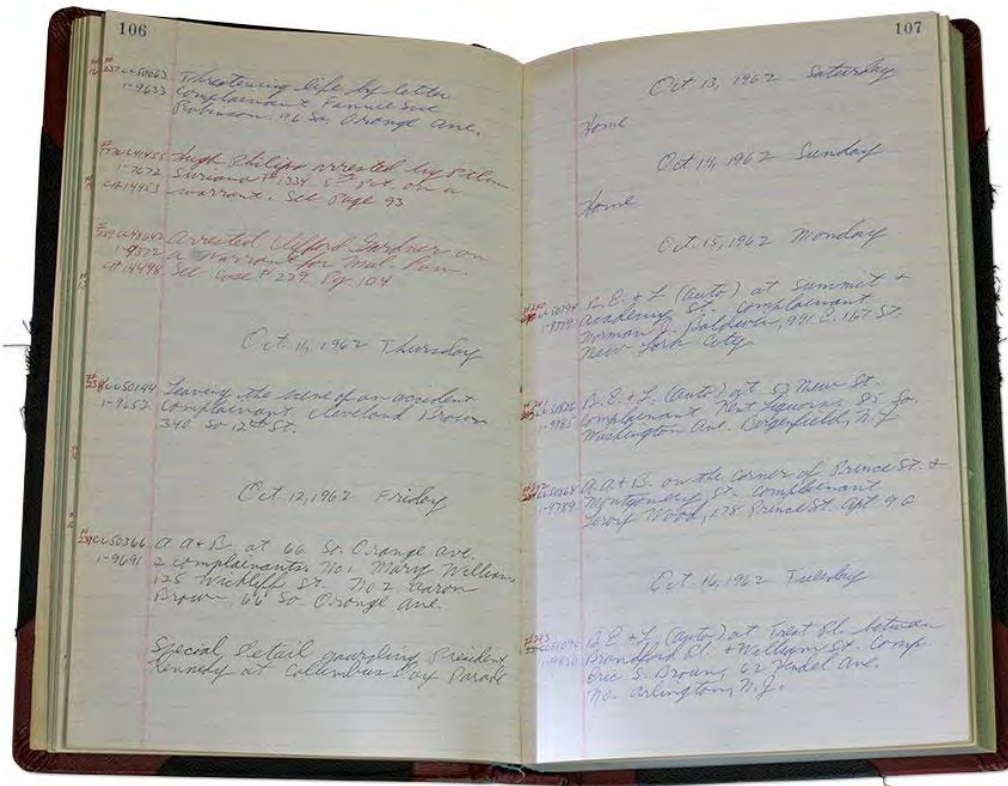 106
237 CC50063 Threatening life by letter
1-9633 complainant Fannie Sue
Robinson 96 So. Orange Ave.
Hugh Philips arrested by Ptlm
1-7672 Suriano #1334 5th Pct. on a
CA14453 warrant. See Page 93
Arrested Clifford Gardner on
1-9372 a warrant for Mal.
CA14498 See Case # 229 Pg 104
Oct. 11, 1962 Thursday
238 CC50144 Leaving the scene of an accident
1-9652 complainant Cleveland Brown
340 So 12th St.
Oct. 12, 1962 Friday
239 CC50366 A A + B at 66 So. Orange Ave.
1-9691 2 complainants. No 1 Mary Williams
125 Wickliffe St. No 2 Aaron
Brown 66 So Orange Ave.
Special Detail guarding President
Kennedy at Columbus Day Parade
107
Oct 13, 1962 Saturday
Home
Oct 14, 1962 Sunday
Home
Oct. 15, 1962 Monday
B. E. + L (auto) at Summit +
Academy St. complainant
Norman J. Baldwin, 991 E. 167 ST.
New York City.
B. E. + L. (auto) at 53 New St.
1-9785 complainant Kent Liquors, 85 So.
Washington Ave. Bergenfield, N.J.
A. A. + B. on the corner of Prince St. +
1-9789 Montgomery St. complainant
Leroy Wood, 178 Prince St. Apt 9G
Oct. 16, 1962 Tuesday
B. E + L (auto) at Treat Pl. between
Brandford Pl. + William St. Comp.
Eric S. Brown, 62 Ave.
No. Arlington, N.J.